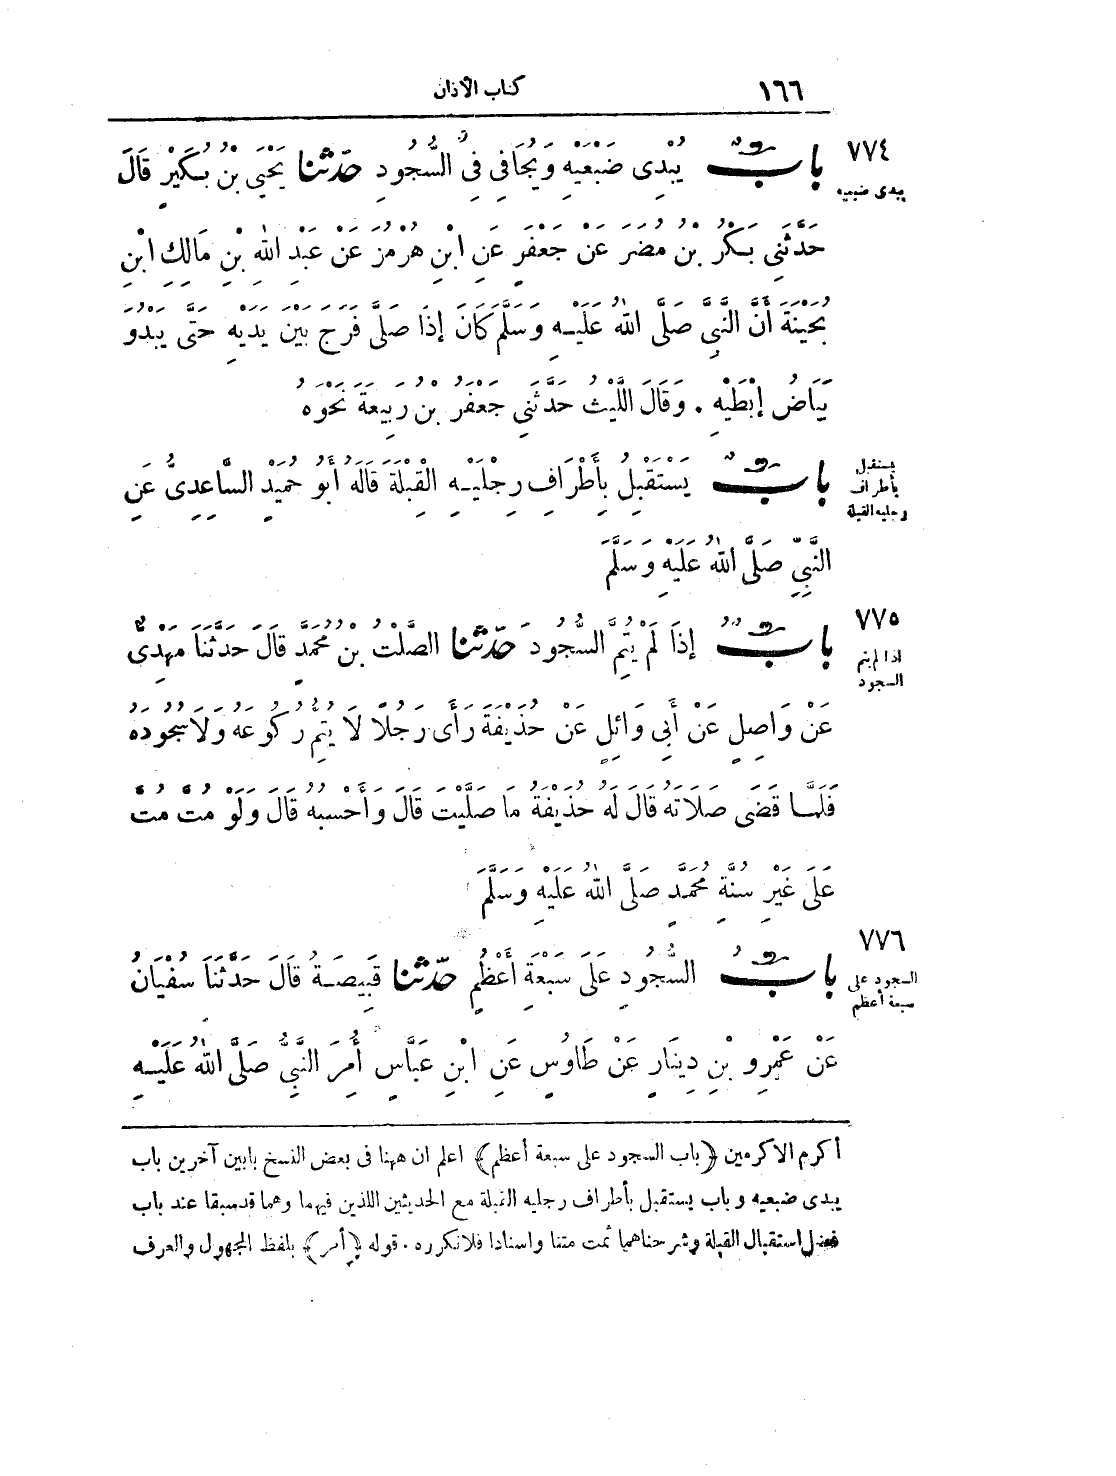 ١٦٦ كتاب الأذان
٧٧٤ بَابٌ يُبْدِى ضَبْعَيْهِ وَيُجَافِى فِى السُّجُودِ حَدَّثَنَا يَحْيَى بْنُ بُكَيْرٍ قَالَ
يبدى ضبعيه
حَدَّثَنِى بَكْرُ بْنُ مُضَرَ عَنْ جَعْفَرٍ عَنِ ابْنِ هُرْمُزَ عَنْ عَبْدِ اللهِ بْنِ مَالِكٍ ابْنِ
بُحَيْنَةَ أَنَّ النَّبِىَّ صَلَّى اللهُ عَلَيْهِ وَسَلَّمَ كَانَ إِذَا صَلَّى فَرَجَ بَيْنَ يَدَيْهِ حَتَّى يَبْدُوَ
بَيَاضُ إِبْطَيْهِ . وَقَالَ اللَّيْثُ حَدَّثَنِى جَعْفَرُ بْنُ رَبِيعَةَ نَحْوَهُ
بَابٌ يَسْتَقْبِلُ بِأَطْرَافِ رِجْلَيْهِ الْقِبْلَةَ قَالَهُ أَبُو حُمَيْدٍ السَّاعِدِىُّ عَنِ
يستقبل
بأطراف
رجليه القبلة
النَّبِىِّ صَلَّى اللهُ عَلَيْهِ وَسَلَّمَ
٧٧٥ بَابٌ إِذَا لَمْ يُتِمَّ السُّجُودَ حَدَّثَنَا الصَّلْتُ بْنُ مُحَمَّدٍ قَالَ حَدَّثَنَا مَهْدِىٌّ
اذا لم يتم
السجود
عَنْ وَاصِلٍ عَنْ أَبِى وَائِلٍ عَنْ حُذَيْفَةَ رَأَى رَجُلًا لَا يُتِمُّ رُكُوعَهُ وَلَا سُجُودَهُ
فَلَمَّا قَضَى صَلَاتَهُ قَالَ لَهُ حُذَيْفَةُ مَا صَلَّيْتَ قَالَ وَأَحْسِبُهُ قَالَ وَلَوْ مُتَّ مُتَّ
عَلَى غَيْرِ سُنَّةِ مُحَمَّدٍ صَلَّى اللهُ عَلَيْهِ وَسَلَّمَ
٧٧٦ بَابُ السُّجُودِ عَلَى سَبْعَةِ أَعْظُمٍ حَدَّثَنَا قَبِيصَةُ قَالَ حَدَّثَنَا سُفْيَانُ
السجود على
سبعة أعظم
عَنْ عَمْرِو بْنِ دِينَارٍ عَنْ طَاوُسٍ عَنِ ابْنِ عَبَّاسٍ أُمِرَ النَّبِىُّ صَلَّى اللهُ عَلَيْهِ
أكرم الاكرمين ﴿باب السجود على سبعة أعظم﴾ اعلم ان ههنا فى بعض النسخ بابين آخرين باب
يبدى ضبعيه وباب يستقبل بأطراف رجليه القبلة مع الحديثين اللذين فيهما وهما قد سبقا عند باب
فضل استقبال القبلة وشرحناهما ثمت متنا واسنادا فلا نكرره . قوله ﴿أمر﴾ بلفظ المجهول والعرف